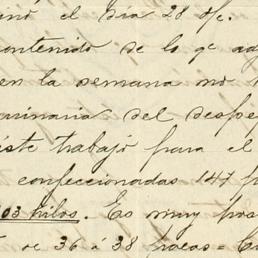 inó el día 28 d/c.
contenido de lo qe ad
en la semana no
uinaria del despe
iste trabajó para el
confeccionadas 147 p
03 kilos. Es muy pos
de 36 á 38 pacas = C